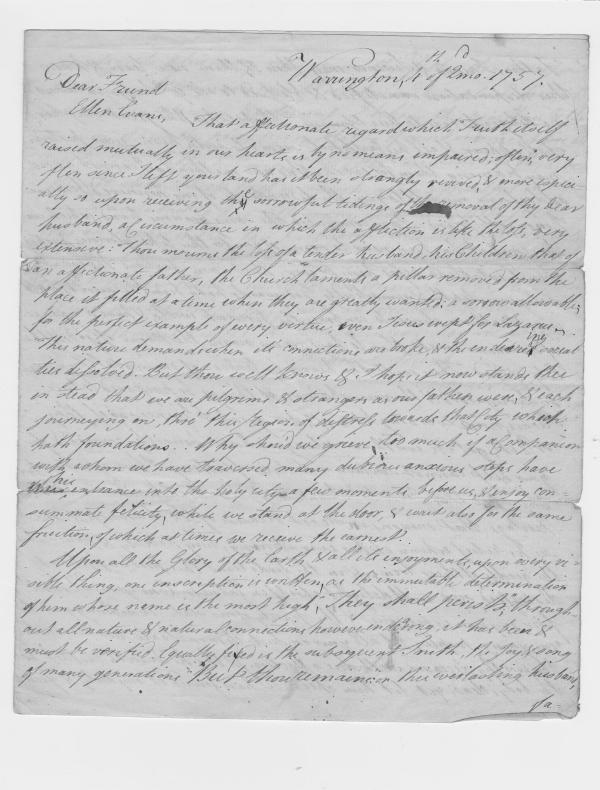 Warrington, 4th of 2d mo. 1757.
Dear Friend
Ellen Evans,
That affectionate regard which Truth itself
raised mutually in our hearts is by no means impaired; often, very
often since I left your land has it been strangly revived, & more especi
ally so upon receiving the sorrowful tidings of the removal of thy dear
husband, a Circumstance in which the affliction is like the loss, very
extensive: Thou mourns the loss of a tender husband, his Children that of
an affectionate father, the Church laments a pillar removed from the
place it filled at a time when they are greatly wanted: a sorrow allowable,
for the perfect example of every virtue, even Jesus wept for Lazarus.
This nature demands when its connections are broke, & the endearing social
ties dissolved. But thou well knows & I hope it now stands thee
in stead that we are pilgrims & strangers as our fathers were, & each
journeying on, thro' this region of distress towards that City which
hath foundations. Why should we grieve too much if a Companion
with whom we have traversed many dubious anxious steps have
his entrance into the holy city a few moments before us, & enjoy con=
summate felicity, while we stand at the door, & wait also for the same
fruition, of which at times we receive the earnest?
Upon all the Glory of the Earth & all its enjoyments, upon every vi
sible thing, one inscription is written, as the immutable determination
of him whose name is the most high, "They shall perish", through-
out all nature & natural connections however endearing, it has been &
must be verified. Equally fixed is the subsequent Truth, the Joy & song
of many generations "But thou remainest" thee everlasting husband,
fa-